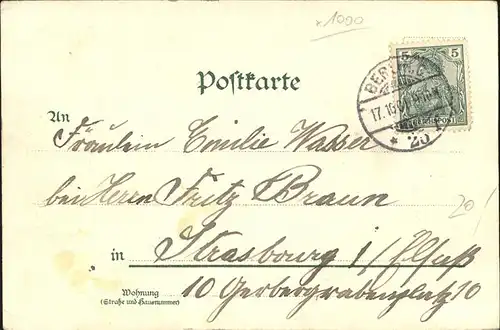 x 1000
5 5
BERLIN C
17.10.01
REICHSPOST
* 25
Postkarte
An
Fräulein Emilie Wasser
bei Herrn Fritz Braun
20/
in Strasbourg i/ Elsaß
Wohnung
(Straße und Hausnummer)
10 Gerbergrabenplatz 10